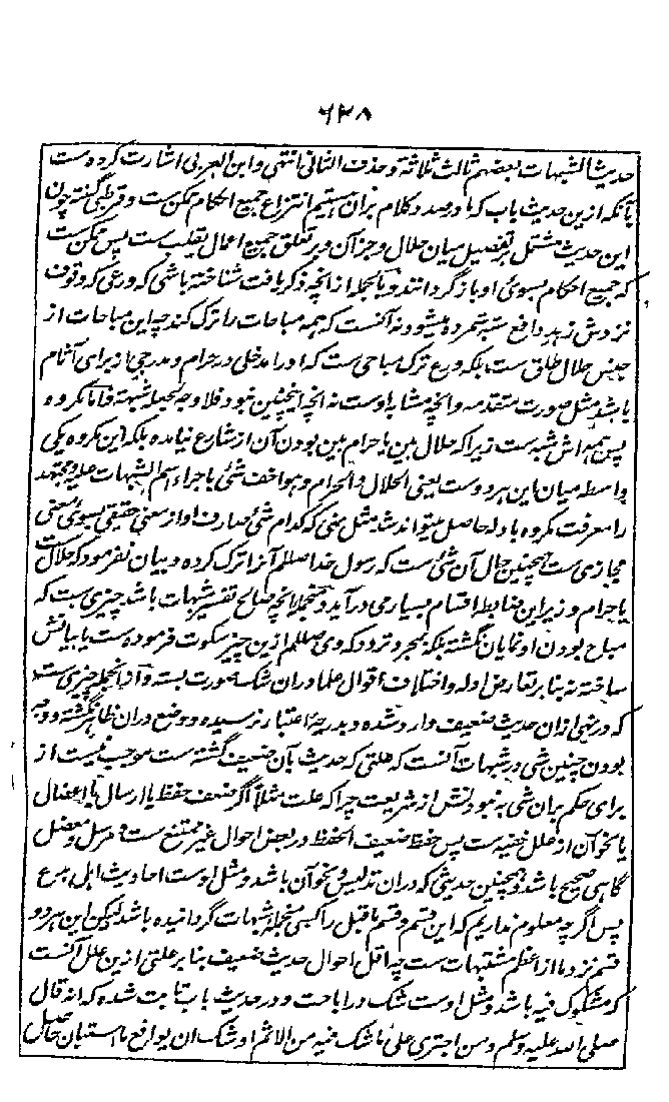 ۶۲۸
حدیث الشبهات بعضهم ثالث ثلاثة و حذف الثانی انتهی و ابن العربی اشارت کرده است
بآنکه ازین حدیث باب که ما در صدد کلام بران هستیم انتزاع جمیع احکام ممکن ست و قرطبی گفته چون
این حدیث مشتمل بر تفصیل میان حلال و جز آن و بر تعلق جمیع اعمال بقلب ست پس ممکن ست
که جمیع احکام بسوی او بازگردانند و بالجمله از انچه ذکر یافت شناخته باشی که ورعی که وقوف
نزدش زهد دافع شبه شمرده میشود نه آنست که همه مباحات را ترک کند چه این مباحات از
جنس حلال طلق ست بلکه ورع ترک مباحی ست که او را مدخلی در حرام و مدرجی از برای آثام
باشد مثل صورت متقدمه و انچه مشابه اوست نه انچه اینچنین نبود فلا وجه لجعله شبهة فاما مکروه
پس همه اش شبه ست زیرا که حلال بین یا حرام بین بودن آن از شارع نیامده بلکه این مکروه یکی
واسطه میان این هر دوست یعنی الحلال و الحرام و هو اخف شئ باجراء اسم الشبهات علیه و مجتهد
را معرفت مکروه بادله حاصل میتواند شد مثل نهی که کدام شئ صارف او از معنی حقیقی بسوی معنی
مجازی ست همچنین حال آن شئ ست که رسول خدا صلعم آنرا ترک کرده و بیان نفرمود که حلال ست
یا حرام و زیر این ضابط اقسام بسیار می درآید و منجمله انچه صالح تفسیر شبهات باشد چیزی ست که
مباح بودن او نمایان نگشته بلکه بمجرد تردد که وی صلعم ازین چیز سکوت فرموده ست یا بیانش
ساخته نه بنابر تعارض ادله و اختلاف اقوال علما دران شک صورت بسته و ازانجمله چیزی ست
که در نهی ازان حدیث ضعیف وارد شده و بدرجهٔ اعتبار نرسیده و وضع دران ظاهر نگشته و وجه
بودن چنین شی در شبهات آنست که علتی که حدیث بآن ضعیف گشته ست موجب نیست از
برای حکم بران شی به نبودنش از شریعت چراکه علت مثلاً اگر ضعف حفظ یا ارسال یا اعضال
یا نحو آن از علل خفیه ست پس حفظ ضعیف الحفظ در بعض احوال غیر ممتنع ست و مرسل و معضل
گاهی صحیح باشد و همچنین حدیثی که دران تدلیس و نحو آن باشد و مثل اوست احادیث اهل بدع
پس اگرچه معلوم نداریم که این قسم و قسم ماقبل را کسی منجمله شبهات گردانیده باشد لیکن این هر دو
قسم نزد ما از اعظم مشتبهات ست چه اقل احوال حدیث ضعیف بنابر علتی ازین علل آنست
که مشکوک فیه باشد و مثل اوست شک در اباحت و در حدیث باب ثابت شده که انه قال
صلی الله علیه وسلم و من اجتری علی ما شک فیه من الاثم اوشک ان یواقع ما استبان حاصل